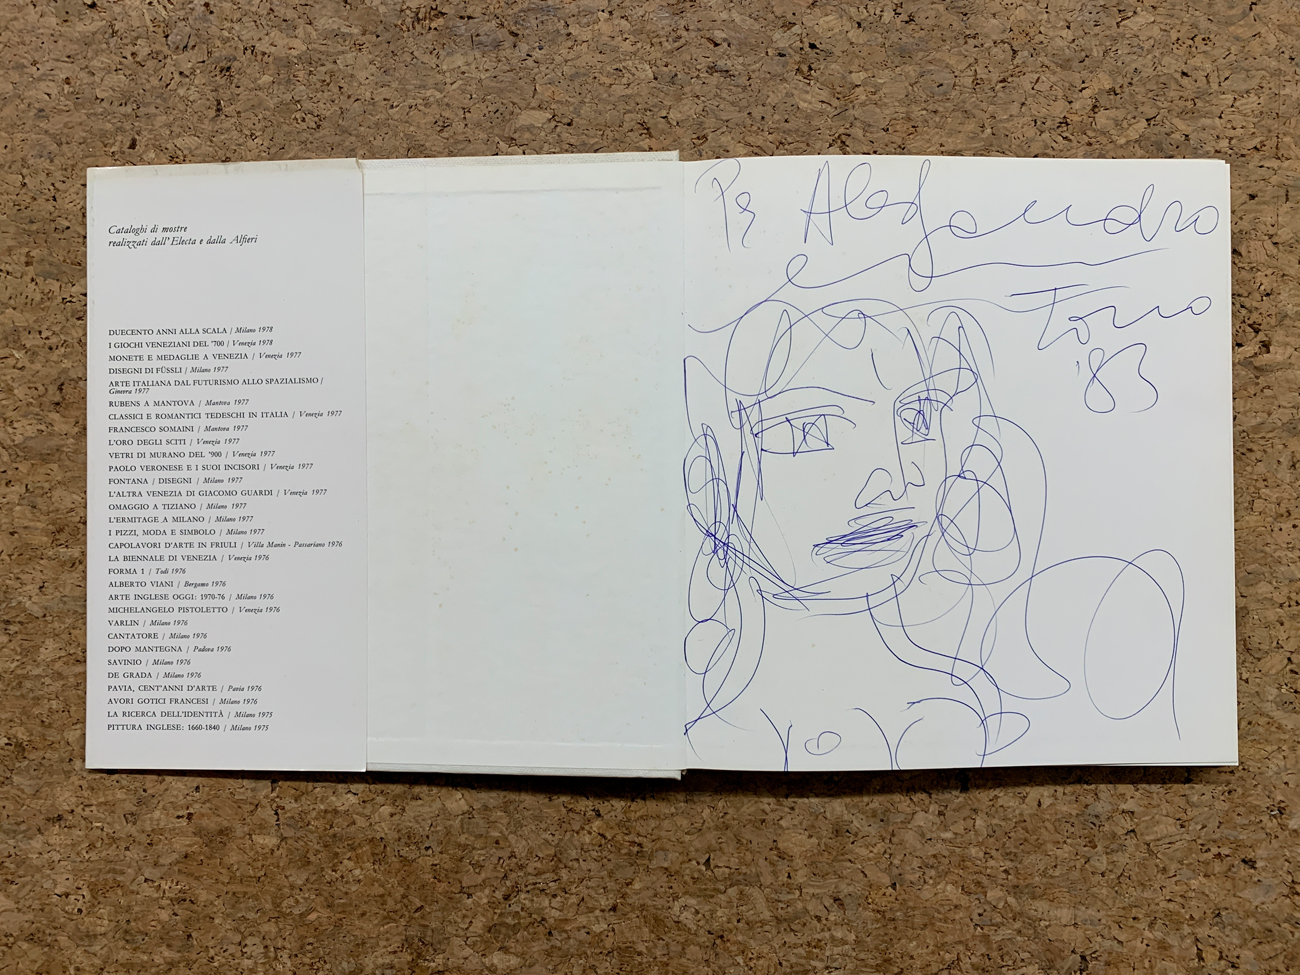 Cataloghi di mostre
realizzati dall'Electa e dalla Alfieri
DUECENTO ANNI ALLA SCALA / Milano 1978
I GIOCHI VENEZIANI DEL '700 / Venezia 1978
MONETE E MEDAGLIE A VENEZIA / Venezia 1977
DISEGNI DI FÜSSLI / Milano 1977
ARTE ITALIANA DAL FUTURISMO ALLO SPAZIALISMO /
Ginevra 1977
RUBENS A MANTOVA / Mantova 1977
CLASSICI E ROMANTICI TEDESCHI IN ITALIA / Venezia 1977
FRANCESCO SOMAINI / Mantova 1977
L'ORO DEGLI SCITI / Venezia 1977
VETRI DI MURANO DEL '900 / Venezia 1977
PAOLO VERONESE E I SUOI INCISORI / Venezia 1977
FONTANA / DISEGNI / Milano 1977
L'ALTRA VENEZIA DI GIACOMO GUARDI / Venezia 1977
OMAGGIO A TIZIANO / Milano 1977
L'ERMITAGE A MILANO / Milano 1977
I PIZZI, MODA E SIMBOLO / Milano 1977
CAPOLAVORI D'ARTE IN FRIULI / Villa Manin - Passariano 1976
LA BIENNALE DI VENEZIA / Venezia 1976
FORMA 1 / Todi 1976
ALBERTO VIANI / Bergamo 1976
ARTE INGLESE OGGI: 1970-76 / Milano 1976
MICHELANGELO PISTOLETTO / Venezia 1976
VARLIN / Milano 1976
CANTATORE / Milano 1976
DOPO MANTEGNA / Padova 1976
SAVINIO / Milano 1976
DE GRADA / Milano 1976
PAVIA, CENT'ANNI D'ARTE / Pavia 1976
AVORI GOTICI FRANCESI / Milano 1976
LA RICERCA DELL'IDENTITÀ / Milano 1975
PITTURA INGLESE: 1660-1840 / Milano 1975
Alessandro
'83